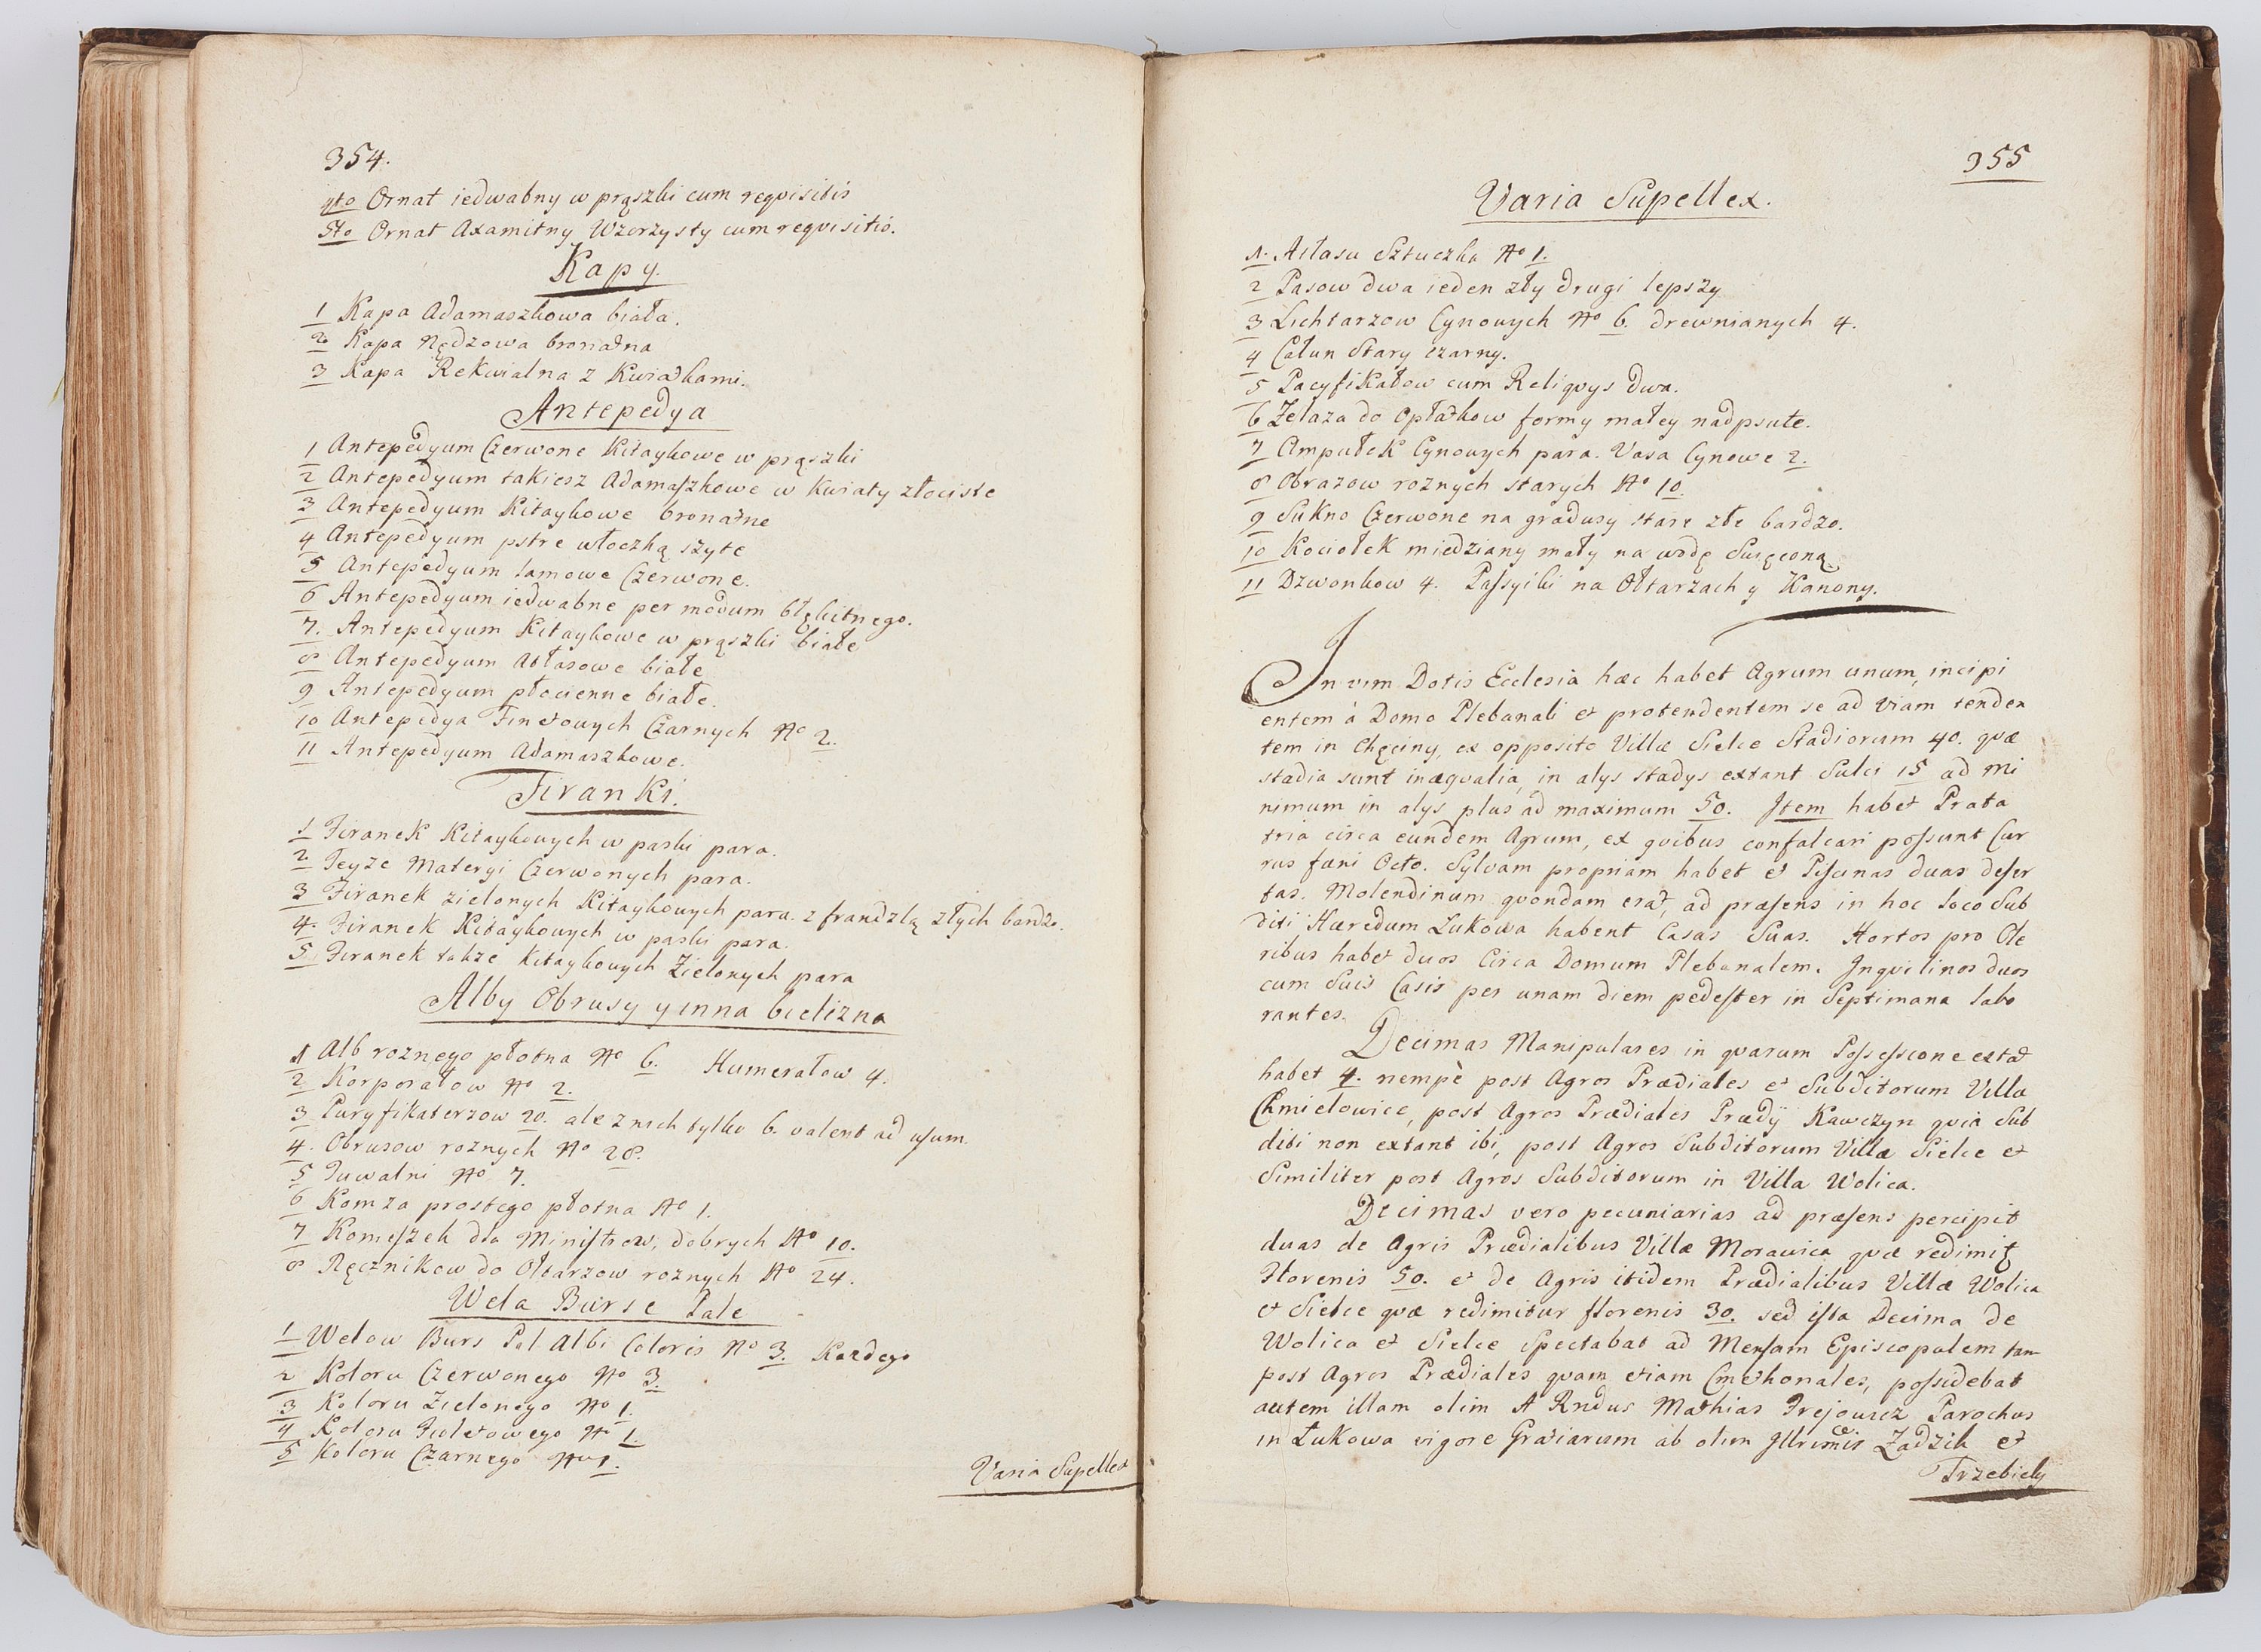 354.
4to Ornat iedwabny w prąszki cum reqvisitis
5to Ornat Axamitny Wzorzysty cum reqvisitis.
Kapy.
1 Kapa Adamaszkowa biała.
2 Kapa Nędzowa bronatna
3 Kapa Rekwialna z Kwiatkami.
Antepedya
1 Antepedyum Czerwone Kitaykowe w prąszki
2 Antepedyum takiesz Adamaszkowe w Kwiaty złociste
3 Antepedyum Kitaykowe bronatne
4 Antepedyum pstre włoczką szyte
5 Antepedyum lamowe Czerwone.
6 Antepedyum iedwabne per modum błękitnego.
7. Antepedyum Kitaykowe w prąszki białe
8 Antepedyum Atłasowe białe
9 Antepedyum płocienne białe.
10 Antepedya Fioletowych Czarnych No 2.
11 Antepedyum Adamaszkowe.
Firanki.
1 Firanek Kitaykowych w paski para.
2 Teyze Materyi Czerwonych para.
3 Firanek zielonych Kitaykowych para. z frandzlą złych bardzo.
4. Firanek Kitaykowych w paski para.
5 Firanek takze Kitaykowych Zielonych para
Alby Obrusy y inna bielizna
1 Alb roznego płotna No 6. Humerałow 4.
2 Korporałow No 2.
3 Puryfikaterzow 20. ale z nich tylko 6. valent ad usum.
4. Obrusow roznych No 28.
5 Tuwalni No 7.
6 Komza prostego płotna No 1.
7 Komeszek dla Ministrow, dobrych No 10.
8 Ręcznikow do Ołtarzow roznych No 24.
Wela Bursе Pale
1 Welow Burs Pal Albi Coloris No 3. Kazdego
2 Koloru Czerwonego No 3.
3 Koloru Zielonego No 1.
4 Koloru Fioletowego No 1.
5 Koloru Czarnego No 1.
Varia Supellex
355
Varia Supellex.
1. Atłasu Sztuczka No 1.
2 Pasow dwa ieden zły drugi lepszy
3 Lichtarzow Cynowych No 6. drewnianych 4.
4 Całun Stary czarny.
5 Pacyfikałow cum Reliqvys dwa.
6 Żelaza do Opłatkow formy małey nadpsute.
7 Ampułek Cynowych para. Vasa Cynowe 2.
8 Obrazow roznych starych No 10.
9 Sukno Czerwone na gradusy stare złe bardzo.
10 Kociołek miedziany mały na wodę Swięconą.
11 Dzwonkow 4. Passyiki na Ołtarzach y Kanony.
In vim Dotis Ecclesia hæc habet Agrum unum, incipi
entem à Domo Plebanali et protendentem se ad viam tenden
tem in Chęciny, ex opposito Villæ Sielce Stadiorum 40. qvæ
stadia sunt inæqvalia, in alys stadys extant Sulci 15 ad mi
nimum in alys plus ad maximum 50. Item habet Prata
tria circa eundem Agrum, ex qvibus confalcari possunt Cur
rus fæni Octo. Sylvam propriam habet et Piscinas duas deser
tas. Molendinum qvondam erat, ad præsens in hoc loco Sub
diti Hæredum Lukowa habent Casas Suas. Hortos pro Ole
ribus habet duos Circa Domum Plebanalem. Inqvilinos duos
cum Suis Casis per unam diem pedester in Septimana labo
rantes.
Decimas Manipulares in qvarum Possessione extat
habet 4. nempè post Agros Prædiales et Subditorum Villa
Chmielowice, post Agros Prædiales Prædÿ Kawczyn qvia Sub
diti non extant ibi, post Agros Subditorum Villæ Sielce et
Similiter post Agros Subditorum in Villa Wolica.
Decimas vero pecuniarias ad præsens percipit
duas de Agris Prædialibus Villæ Morawica qvæ redimit
Florenis 50. et de Agris itidem Prædialibus Villæ Wolica
et Sielce qvæ redimitur florenis 30. sed ista Decima de
Wolica et Sielce Spectabat ad Mensam Episcopalem tam
post Agros Prædiales qvam etiam Cmethonales, possidebat
autem illam olim A Rndus Mathias Parochus
in Łukowa vigore Gratiarum ab olim Zadzik et
Trzebicky